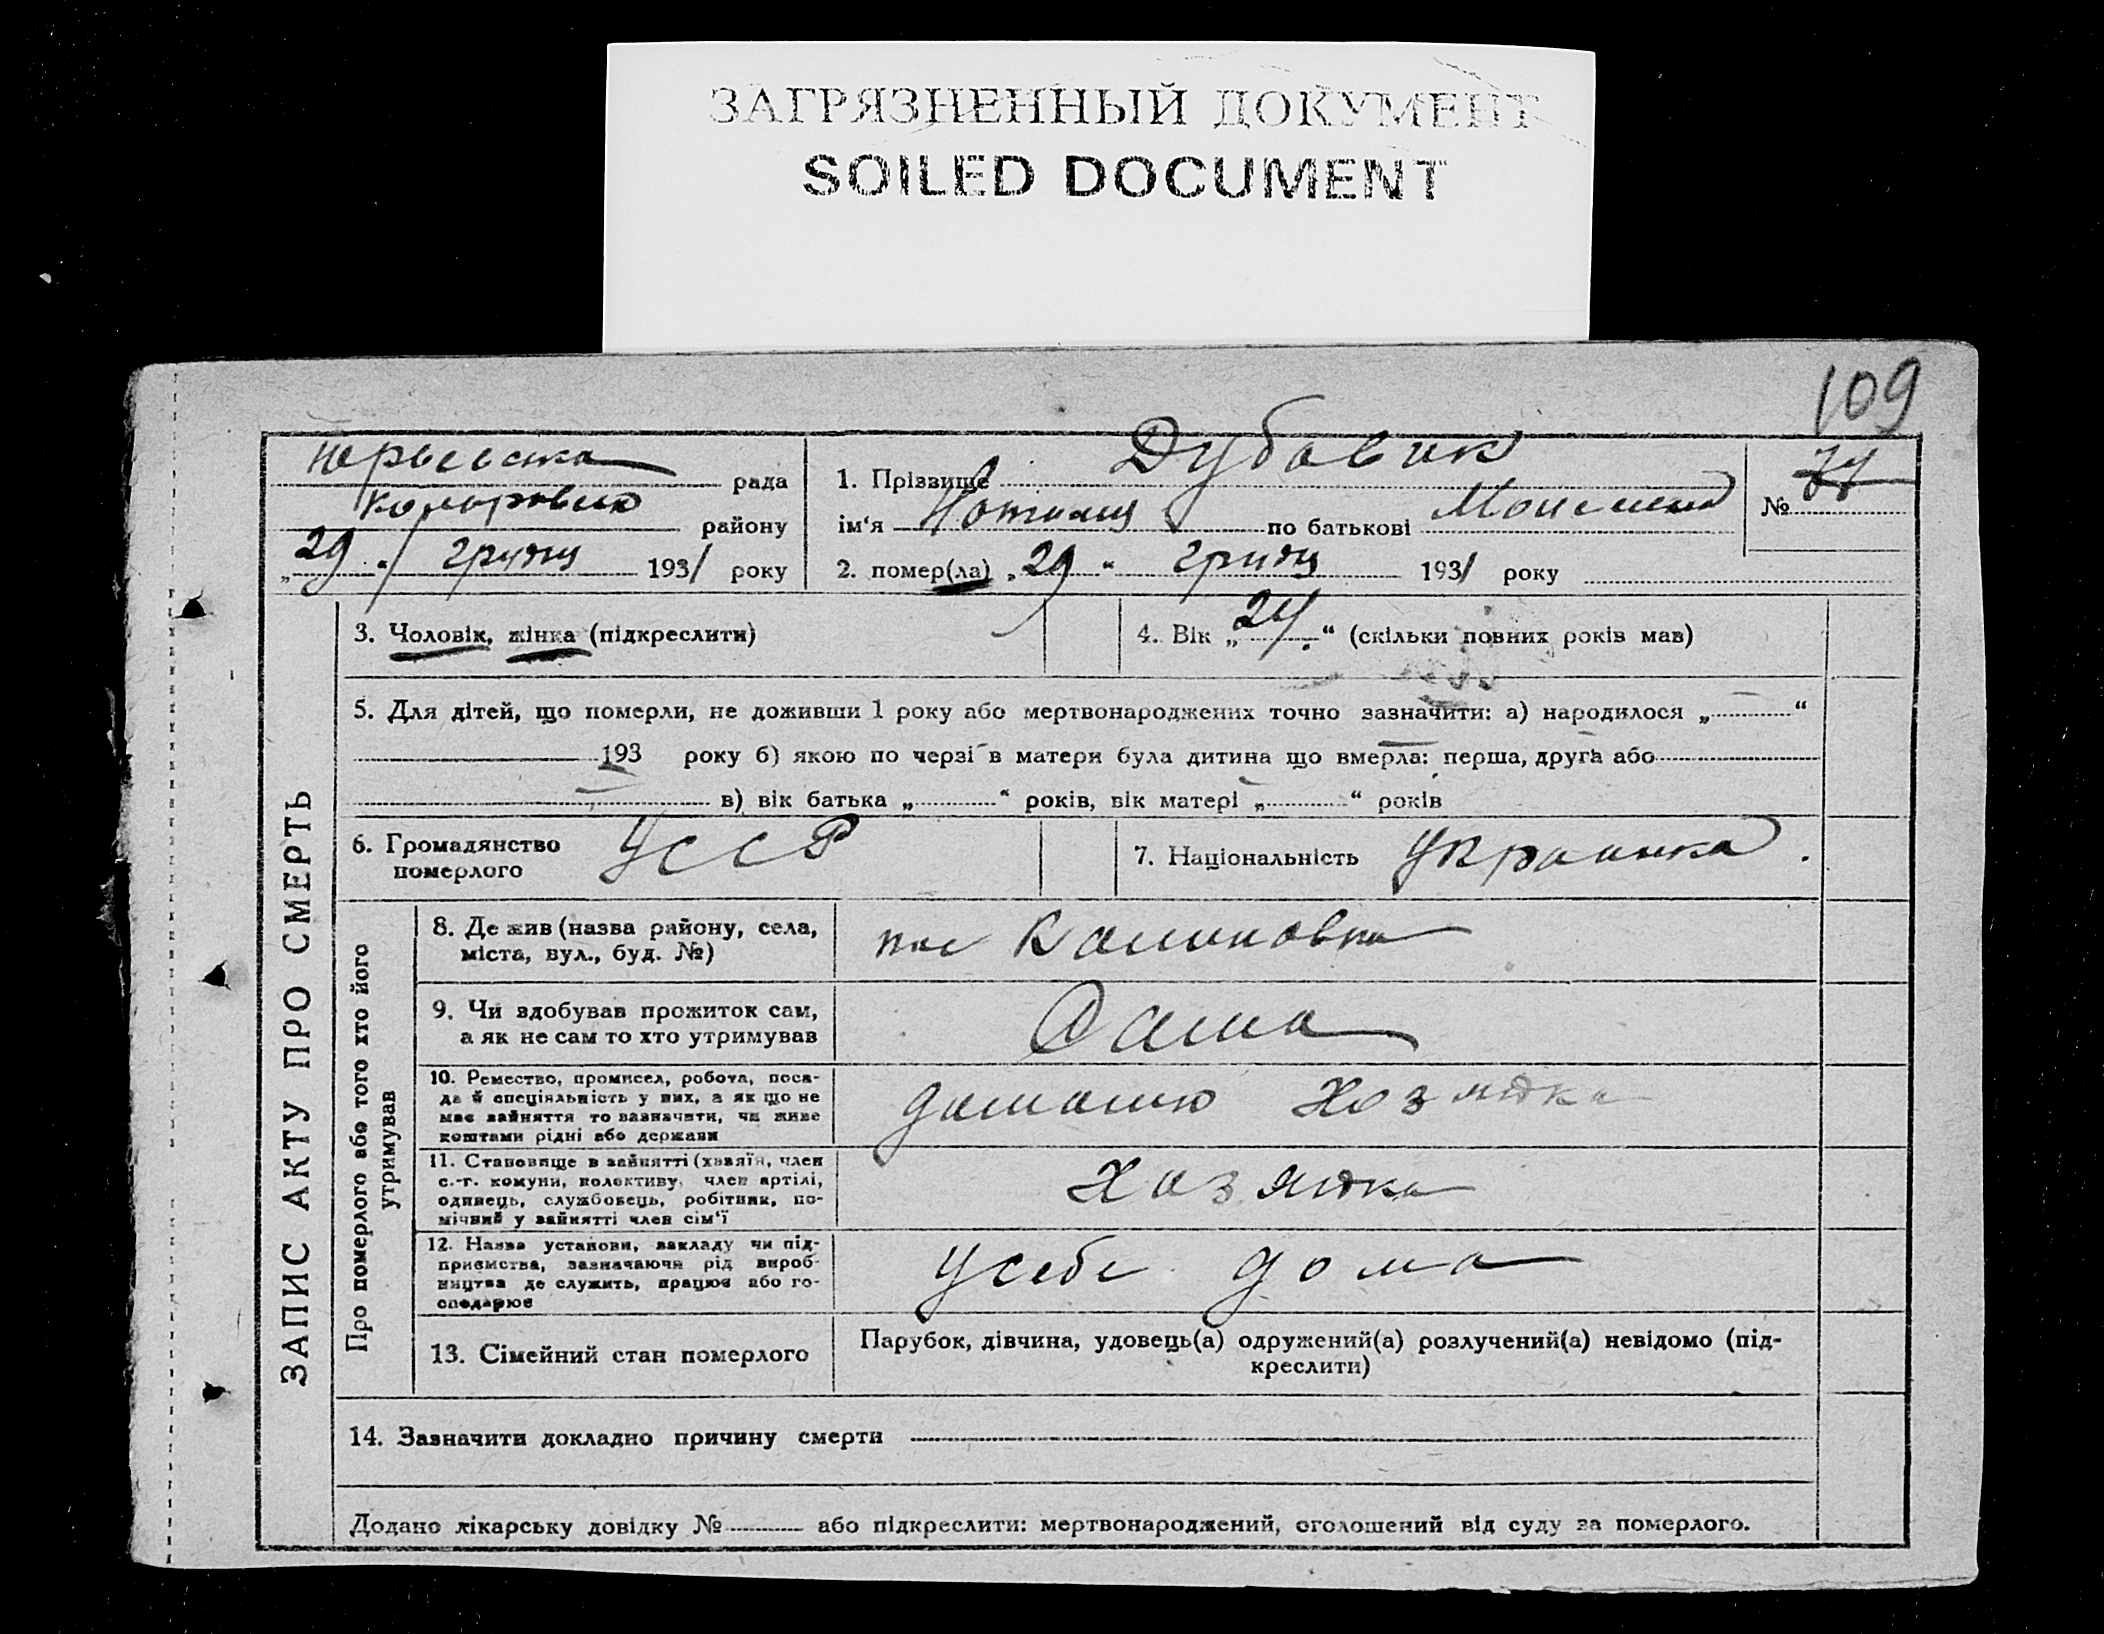 ЗАГРЯЗНЕННЫЙ ДОКУМЕНТ
SOILED DOCUMENT
109
рада
району
„29“ грудня 1931 року
1. Прізвище Дубовик
ім'я Наталия по батькові
№ 37
2. помер(ла) „29“ грудня 1931 року
3. Чоловік, жінка (підкреслити)
4. Вік „24“ (скільки повних років мав)
5. Для дітей, що померли, не доживши 1 року або мертвонароджених точно зазначити: а) народилося „ “
193 року б) якою по черзі в матери була дитина що вмерла: перша, друга або
в) вік батька „ “ років, вік матері „ “ років
6. Громадянство
померлого
УССР
7. Національність Украинка
ЗАПИС АКТУ ПРО СМЕРТЬ
Про померлого або того хто його
утримував
8. Де жив (назва району, села,
міста, вул., буд. №)
Калиновка
9. Чи здобував прожиток сам,
а як не сам то хто утримував
Сама
10. Ремество, промисел, робота, поса-
да й спеціяльність у них, а як що не
має зайняття то вазначити, чи живе
коштами рідні або держави
Хозяйка
11. Становище в зайнятті (хазяїн, член
с.-г. комуни, колективу, член артілі,
одинець, службовець, робітник, по-
мічний у зайнятті член сім'ї
Хозяйка
12. Назва установи, закладу чи під-
приємства, зазначаючи рід вироб-
ництва де служить, працює або го-
сподарює
У себе дома
13. Сімейний стан померлого
Парубок, дівчина, удовець(а) одружений(а) розлучений(а) невідомо (під-
креслити)
14. Зазначити докладно причину смерти
Додано лікарську довідку № або підкреслити: мертвонароджений, оголошений від суду за померлого.